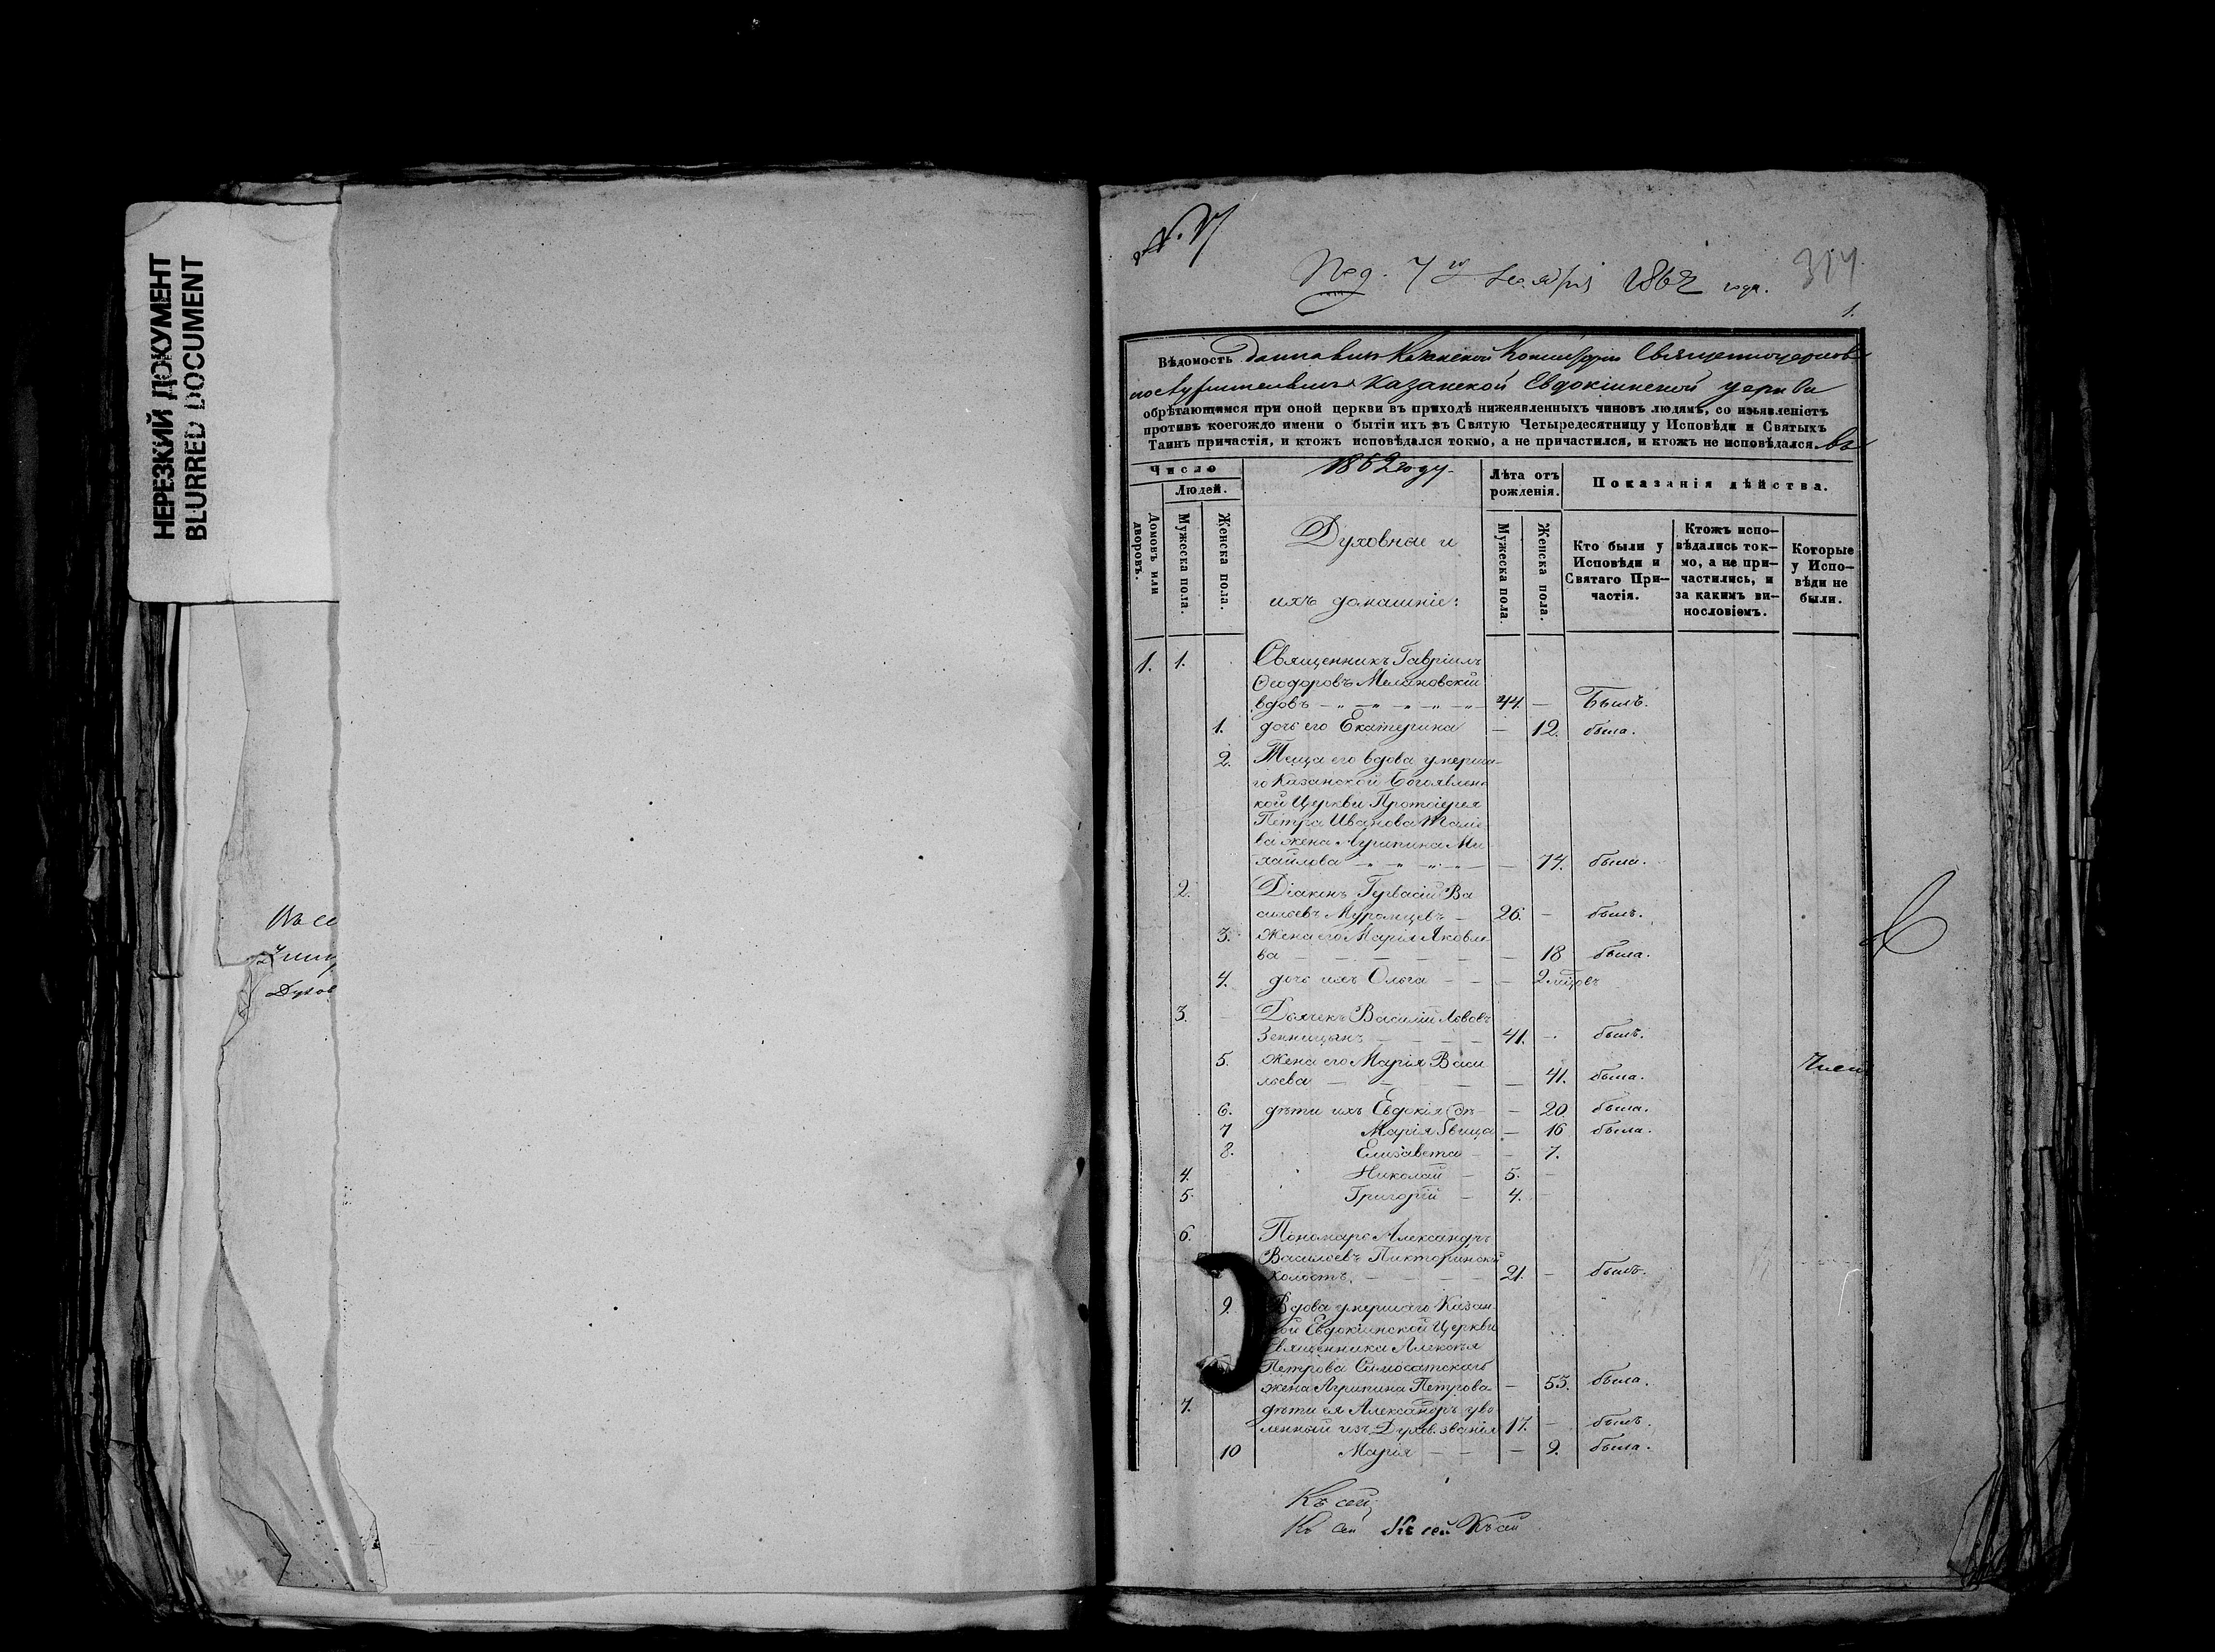 НЕРЕЗКИЙ ДОКУМЕНТ
BLURRED DOCUMENT
Въ се
Духов
314
1862 года.
1.
Вѣдомость Казанской Консисторіи
Казанской Евдокіинской церкви
обрѣтающимся при оной церкви въ приходѣ нижеявленныхъ чиновъ людямъ, со изъявленіетъ
противъ коегождо имени о бытіи ихъ въ Святую Четыредесятницу у Исповѣди и Святыхъ
Таинъ причастія, и ктожъ исповѣдался токмо, а не причастился, и ктожъ не исповѣдался. въ
1862 году.
Число
Людей.
Домовъ или дворовъ.
Мужеска пола.
Женска пола.
Духовные и
ихъ домашніе:
Лѣта отъ рожденія.
Мужеска пола.
Женска пола.
Показанія дѣйства.
Кто были у Исповѣди и Святаго При-частія.
Ктожъ испо-вѣдались ток-мо, а не при-частились, и за какимъ ви-нословіемъ.
Которые у Испо-вѣди не были.
1. 1. Священникъ Гавріилъ
Ѳеодоровъ Мелановскій
вдовъ 44. — Былъ.
1. дочь его Екатерина — 12. была.
2. Теща его вдова умерша-
го Казанской Богоявленс
кой Церкви Протоіерея
Петра Иванова
жена Агрипина Ми
хайлова — 74. была.
2. Діаконъ Гервасій Ва
сильевъ Муромцевъ — 26. — былъ.
3. Жена его Марія Яковле-
ва — 18 была.
4. дочь ихъ Ольга — 2 мѣсцовъ
3. Дьячекъ Василій Львовъ
41. — былъ.
5. Жена его Марія Васи
льева — 41. была.
6. дѣти ихъ Евдокія дѣ- — 20 была.
7 Марія вица — 16 была.
8. Елизавета — 7.
4. Николай — 5. —
5. Григорій — 4. —
6. Пономарь Александръ
Васильевъ
холостъ. 21. — былъ.
9. Вдова умершаго Казан-
ской Евдокіинской Церкви
Священника Алексѣя
Петрова Самосатскаго
жена Агрипина Петрова — 53. была.
7. дѣти ея Александръ уво
ленный изъ Духов. званія 17. — былъ.
10 Марія — 9. была.
Къ сей
Къ сей Къ сей Къ сей